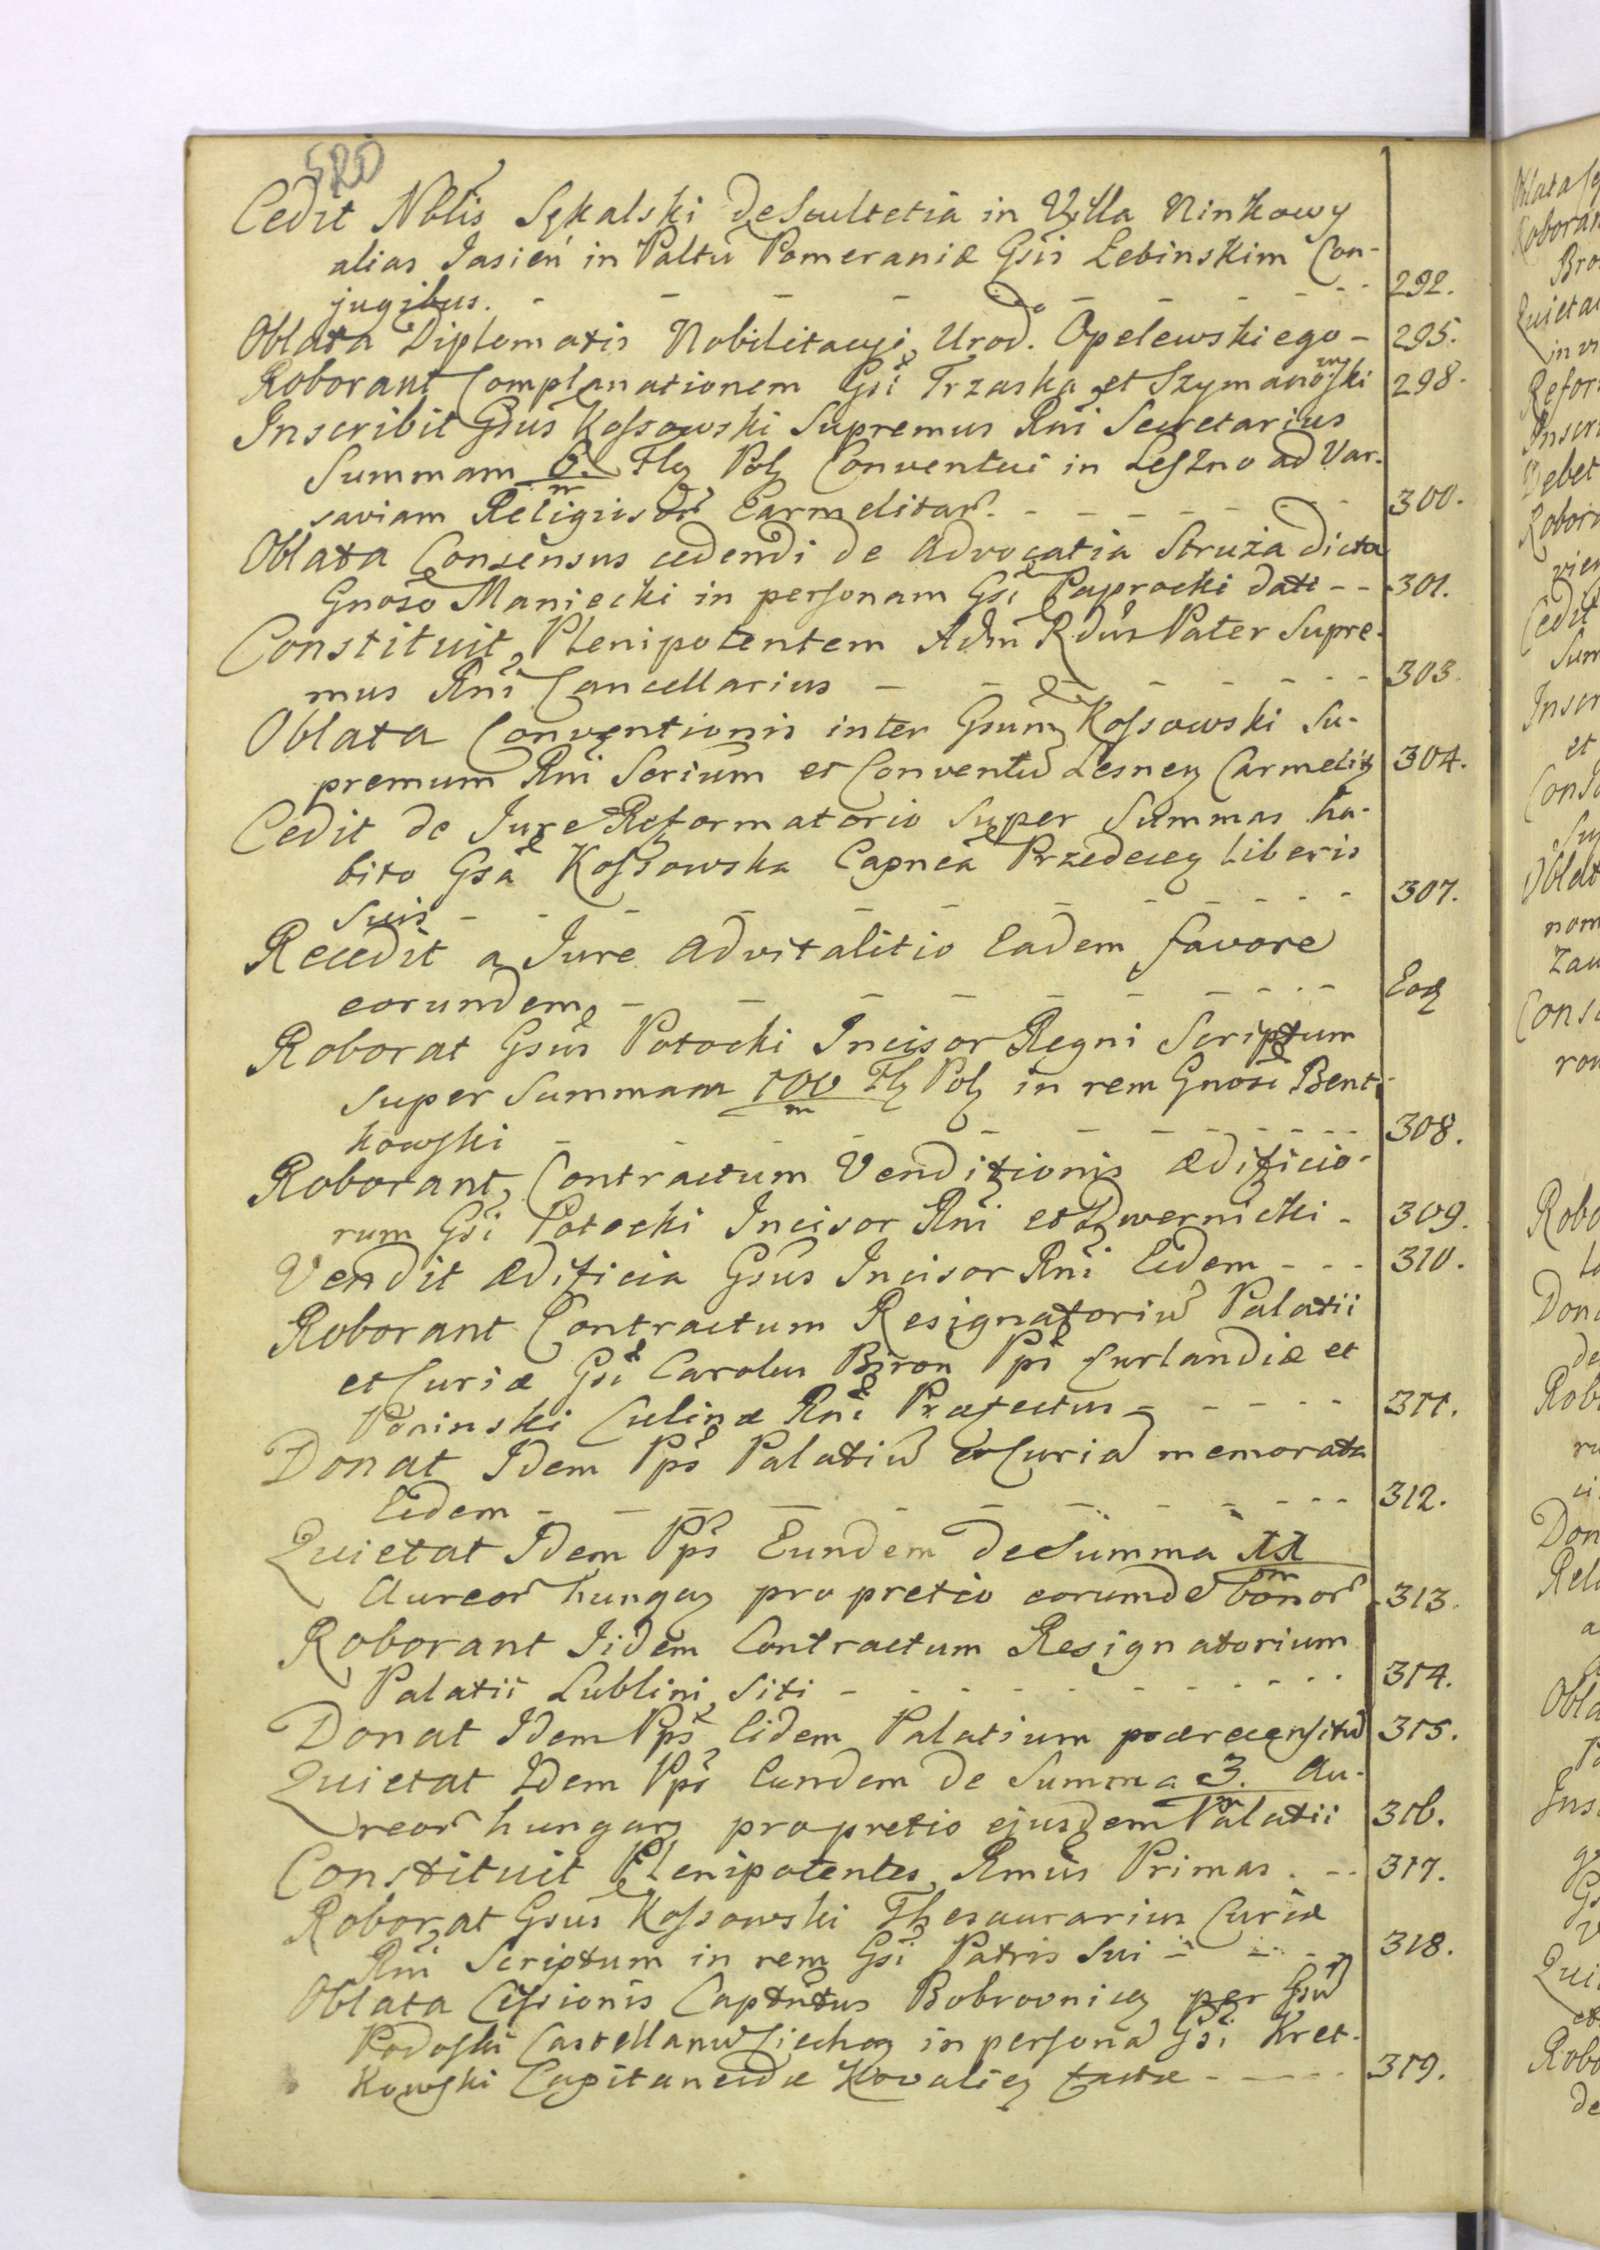 Cedit Nblis Sękalski de Scultetia in Vylla Ninkowy
alias Jasień in Paltu Pomeraniæ Gsis Łebinskim Con-
jugibus. - - - - - - - - 292.
Oblata Diplomatis Nobilitacyi Urod. Opelewskiego - 295.
Roborant Complanationem Gsi Trzaska et Szymanowski 298.
Inscribit Gsus Kossowski Supremus Rni Secretarius
Summam 6/m Flg Polg Conventui in Leszno ad Var-
saviam Religiisor Carmelitar. - - - - - 300.
Oblata Consensus cedendi de Advocatia Struża dicta
Gnoso Maniecki in personam Gsi Paprocki dati - - 301.
Constituit Plenipotentem Adm Rdus Pater Supre-
mus Rni Cancellarius - - - - - - 303.
Oblata Conventionis inter Gsum Kossowski Su-
premum Rni Srium et Conventu Lesneg Carmelitg 304.
Cedit de Jure Reformatorio Super Summas ha-
bito Gsa Kossowska Capnea Przedeceg Liberis
Suis - - - - - - - - 307.
Recedit a Jure Advitalitio Eadem favore
eorundem - - - - - - - - Eog
Roborat Gsus Potocki Incisor Regni Scriptum
super Summam 100/m Flg Polg in rem Gnosi Bent-
kowski - - - - - - - - 308.
Roborant Contractum Venditionis Ædificio-
rum Gsi Potocki Incisor Rni et Dwernicki - 309.
Vendit Ædificia Gsus Incisor Rni Eidem - - - 310.
Roborant Contractum Resignatoriu Palatii
et Curiæ Gsi Carolus Biron Pps Curlandiæ et
Poninski Culinæ Rni Præfectus - - - - 311.
Donat Idem Pps Palatiu et Curia memorata
Eidem - - - - - - - - - 312.
Quietat Idem Pps Eundem de Summa
Aureor hungag pro pretio eorumde bonor 313.
Roborant Iidem Contractum Resignatorium
Palatii Lublini Siti - - - - - - - 314.
Donat Idem Pps Eidem Palatium præreecensitu 315.
Quietat Idem Pps Eundem de Summa 3/m. Au-
reor hungarg pro pretio ejusdem Palatii 316.
Constituit Plenipotentes Rmus Primas . - - 317.
Roborat Gsus Kossowski Thesaurarius Curiæ
Rni Scriptum in rem Gsi Patris Sui - - - 318.
Oblata Cessionis Captntus Bobrovniceg per Gsu
Podoski Castellanu Ciechog in persona Gsi Kret-
kowski Capitaneidæ Kovalieg factæ - - - - 319.